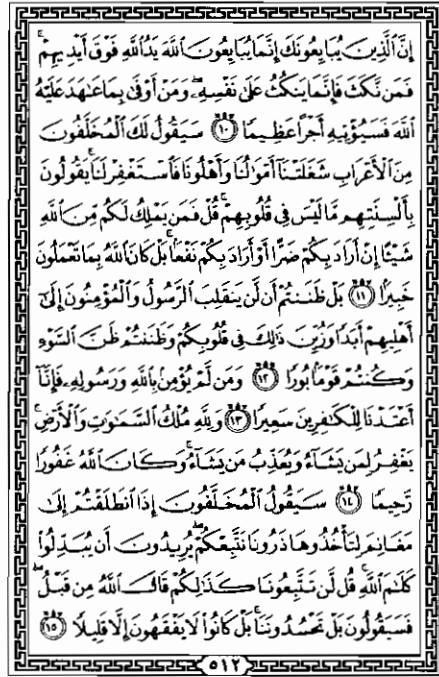 إِنَّ ٱلَّذِينَ يُبَايِعُونَكَ إِنَّمَا يُبَايِعُونَ ٱللَّهَ يَدُ ٱللَّهِ فَوْقَ أَيْدِيهِمْۚ
فَمَن نَّكَثَ فَإِنَّمَا يَنكُثُ عَلَىٰ نَفْسِهِۦۖ وَمَنْ أَوْفَىٰ بِمَا عَٰهَدَ عَلَيْهُ
ٱللَّهَ فَسَيُؤْتِيهِ أَجْرًا عَظِيمًا ١٠ سَيَقُولُ لَكَ ٱلْمُخَلَّفُونَ
مِنَ ٱلْأَعْرَابِ شَغَلَتْنَآ أَمْوَٰلُنَا وَأَهْلُونَا فَٱسْتَغْفِرْ لَنَاۚ يَقُولُونَ
بِأَلْسِنَتِهِم مَّا لَيْسَ فِى قُلُوبِهِمْۚ قُلْ فَمَن يَمْلِكُ لَكُم مِّنَ ٱللَّهِ
شَيْـًٔا إِنْ أَرَادَ بِكُمْ ضَرًّا أَوْ أَرَادَ بِكُمْ نَفْعَۢاۚ بَلْ كَانَ ٱللَّهُ بِمَا تَعْمَلُونَ
خَبِيرَۢا ١١ بَلْ ظَنَنتُمْ أَن لَّن يَنقَلِبَ ٱلرَّسُولُ وَٱلْمُؤْمِنُونَ إِلَىٰٓ
أَهْلِيهِمْ أَبَدًا وَزُيِّنَ ذَٰلِكَ فِى قُلُوبِكُمْ وَظَنَنتُمْ ظَنَّ ٱلسَّوْءِ
وَكُنتُمْ قَوْمَۢا بُورًا ١٢ وَمَن لَّمْ يُؤْمِنۢ بِٱللَّهِ وَرَسُولِهِۦ فَإِنَّآ
أَعْتَدْنَا لِلْكَٰفِرِينَ سَعِيرًا ١٣ وَلِلَّهِ مُلْكُ ٱلسَّمَٰوَٰتِ وَٱلْأَرْضِۚ
يَغْفِرُ لِمَن يَشَآءُ وَيُعَذِّبُ مَن يَشَآءُۚ وَكَانَ ٱللَّهُ غَفُورًا
رَّحِيمًا ١٤ سَيَقُولُ ٱلْمُخَلَّفُونَ إِذَا ٱنطَلَقْتُمْ إِلَىٰ
مَغَانِمَ لِتَأْخُذُوهَا ذَرُونَا نَتَّبِعْكُمْۖ يُرِيدُونَ أَن يُبَدِّلُوا۟
كَلَٰمَ ٱللَّهِۚ قُل لَّن تَتَّبِعُونَا كَذَٰلِكُمْ قَالَ ٱللَّهُ مِن قَبْلُۖ
فَسَيَقُولُونَ بَلْ تَحْسُدُونَنَاۚ بَلْ كَانُوا۟ لَا يَفْقَهُونَ إِلَّا قَلِيلًا ١٥
٥١٢